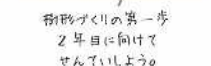 樹形づくりの第一歩
2年目に向けて
せんていしよう。